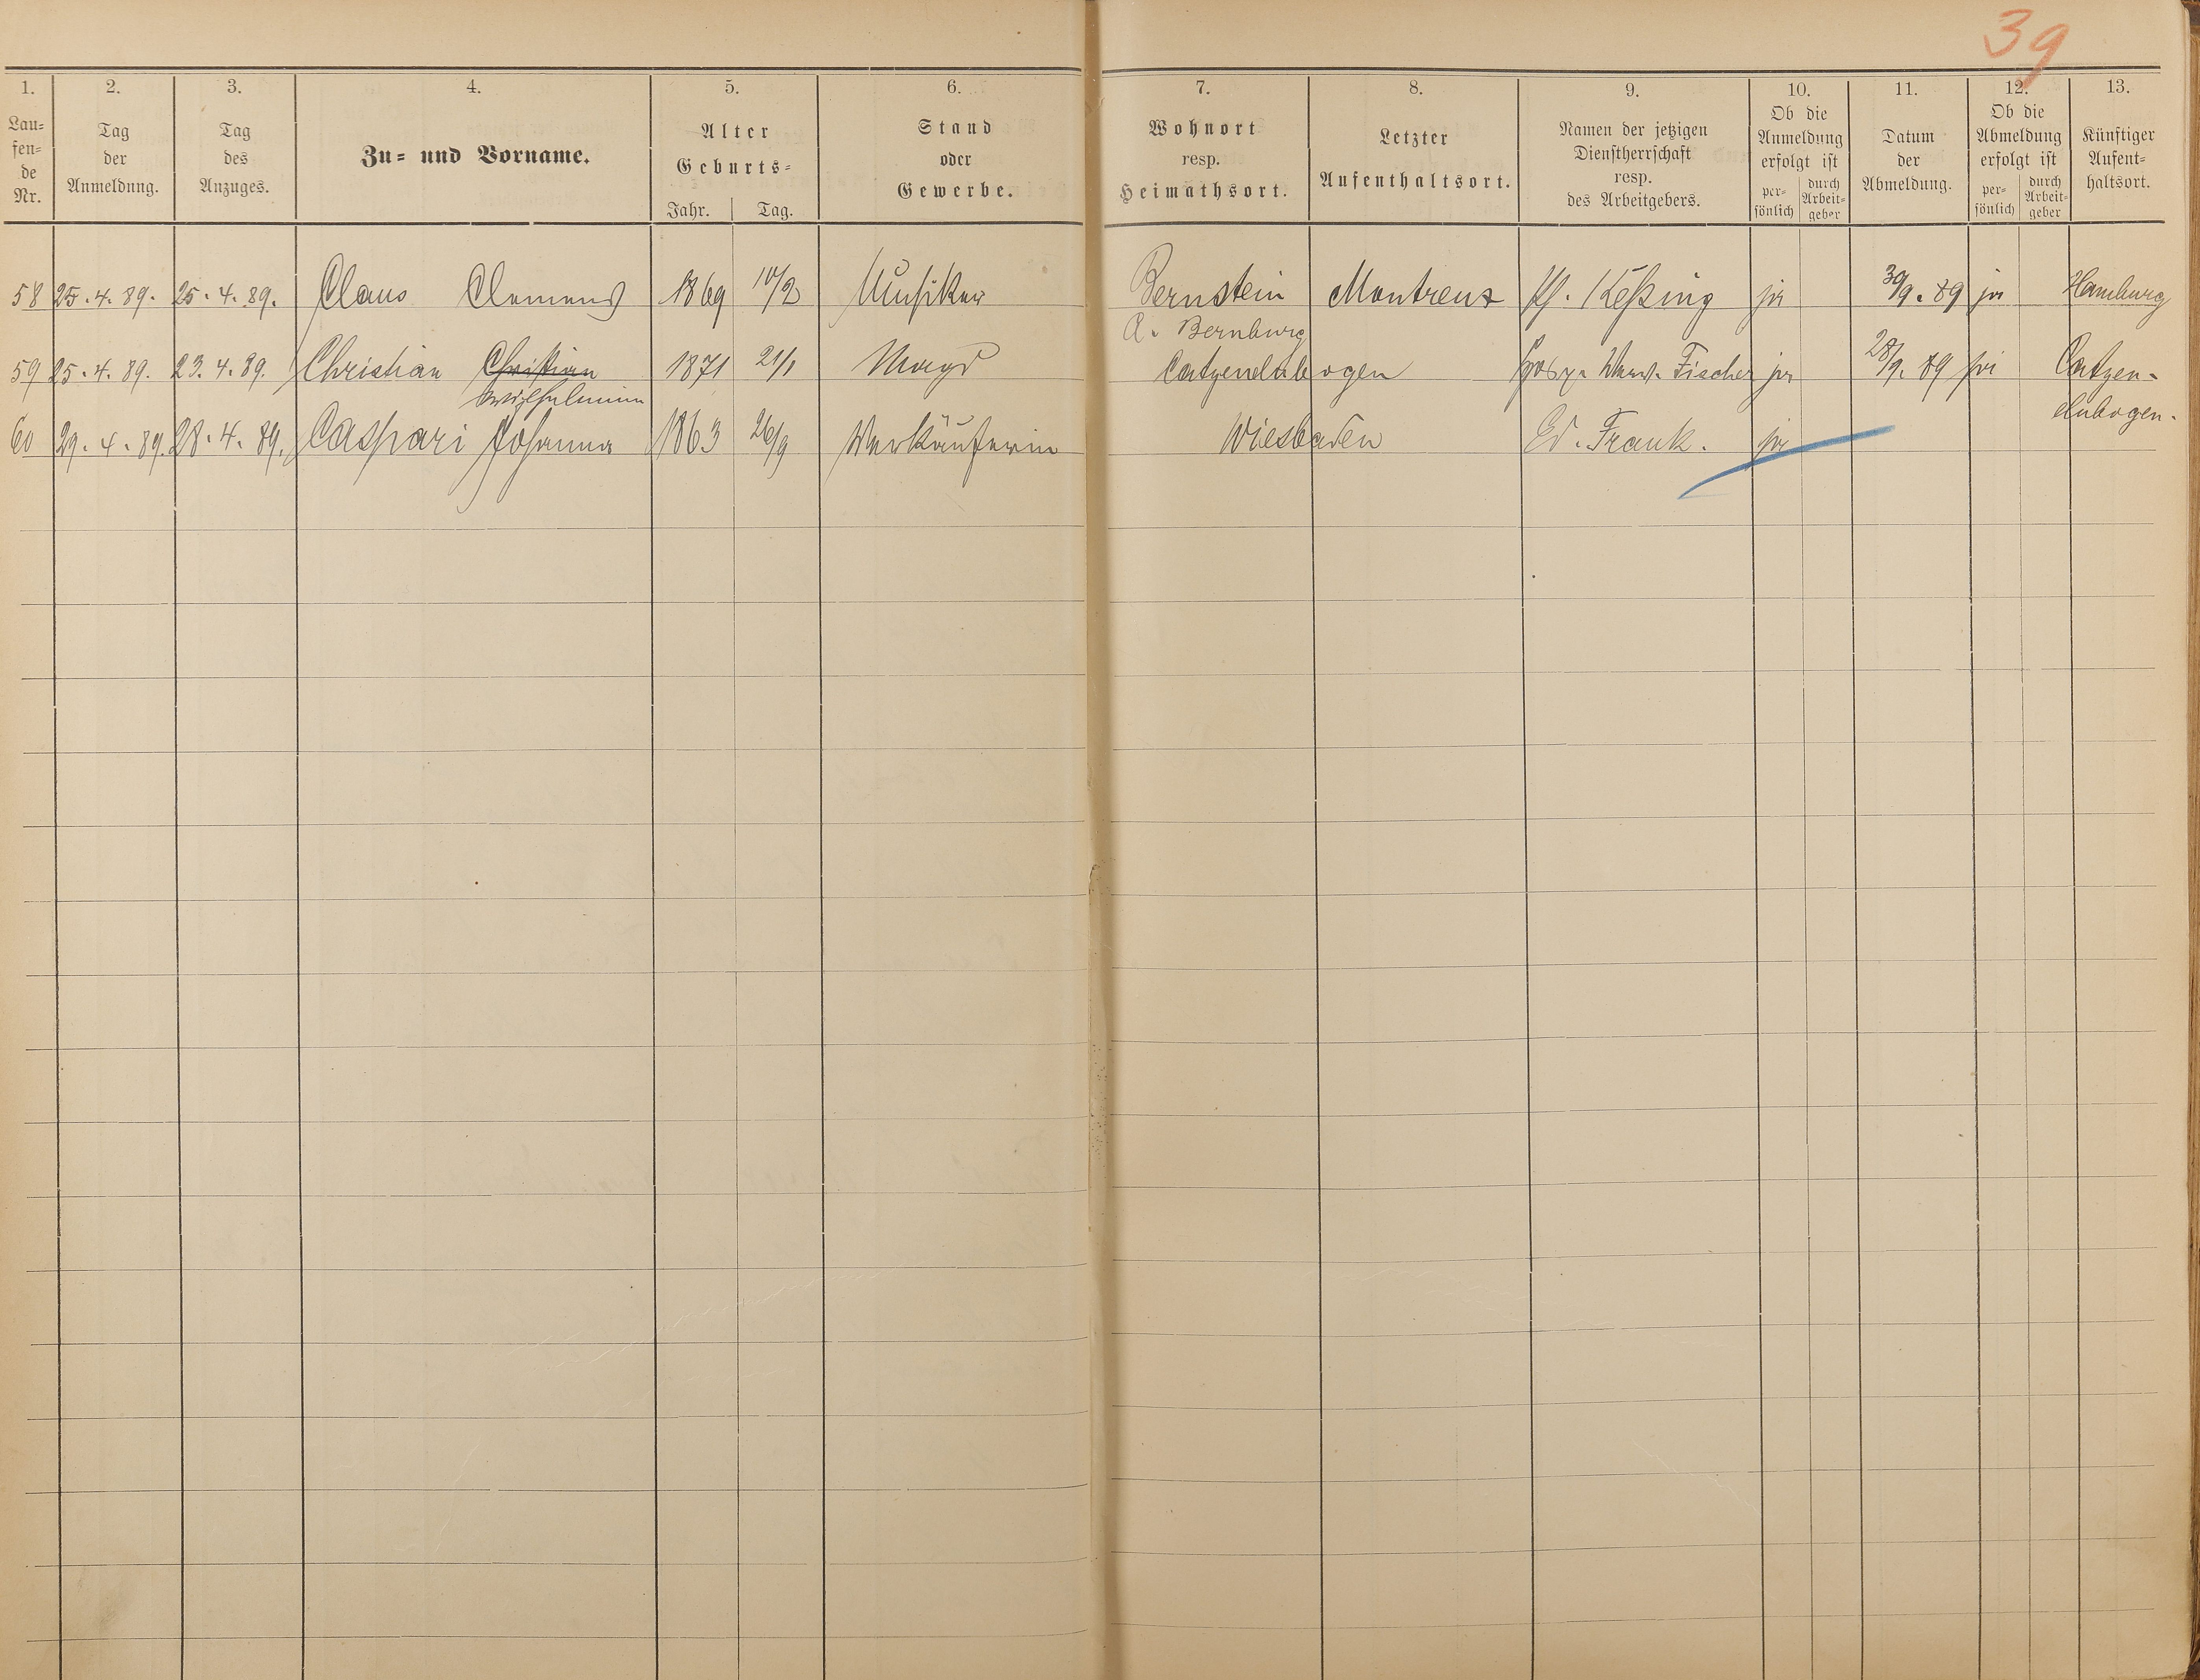 39
1. 2. 3. 4. 5. 6. 7. 8. 9. 10. 11. 12. 13.
Lau-
fen-
de
Nr.
Tag
der
Anmeldung.
Tag
des
Anzuges.
Zu- und Vorname.
Alter
Geburts-
Jahr. Tag.
Stand
oder
Gewerbe.
Wohnort
resp.
Heimathsort.
Letzter
Aufenthaltsort.
Namen der jetzigen
Dienstherrschaft
resp.
des Arbeitgebers.
Ob die
Anmeldung
erfolgt ist
per-
sönlich
durch
Arbeit-
geber
Datum
der
Abmeldung.
Ob die
Abmeldung
erfolgt ist
per-
sönlich
durch
Arbeit-
geber
Künftiger
Aufent-
haltsort.
58 25.4.89. 25.4.89. Claus Clemens 1869 10/2 Musiker Bernstein Montreux Keßing ja 30/9.89 ja Hamburg
A. Bernburg
59 25.4.89. 23.4.89. Christian Christian 1871 21/1 Magd Catzenelnbogen Fischer ja 28/9.89 ja Catzen-
Wilhelmine elnbogen.
60 29.4.89. 28.4.89. Caspari Johanna 1863 26/9 Verkäuferin Wiesbaden Ed. Frank. ja